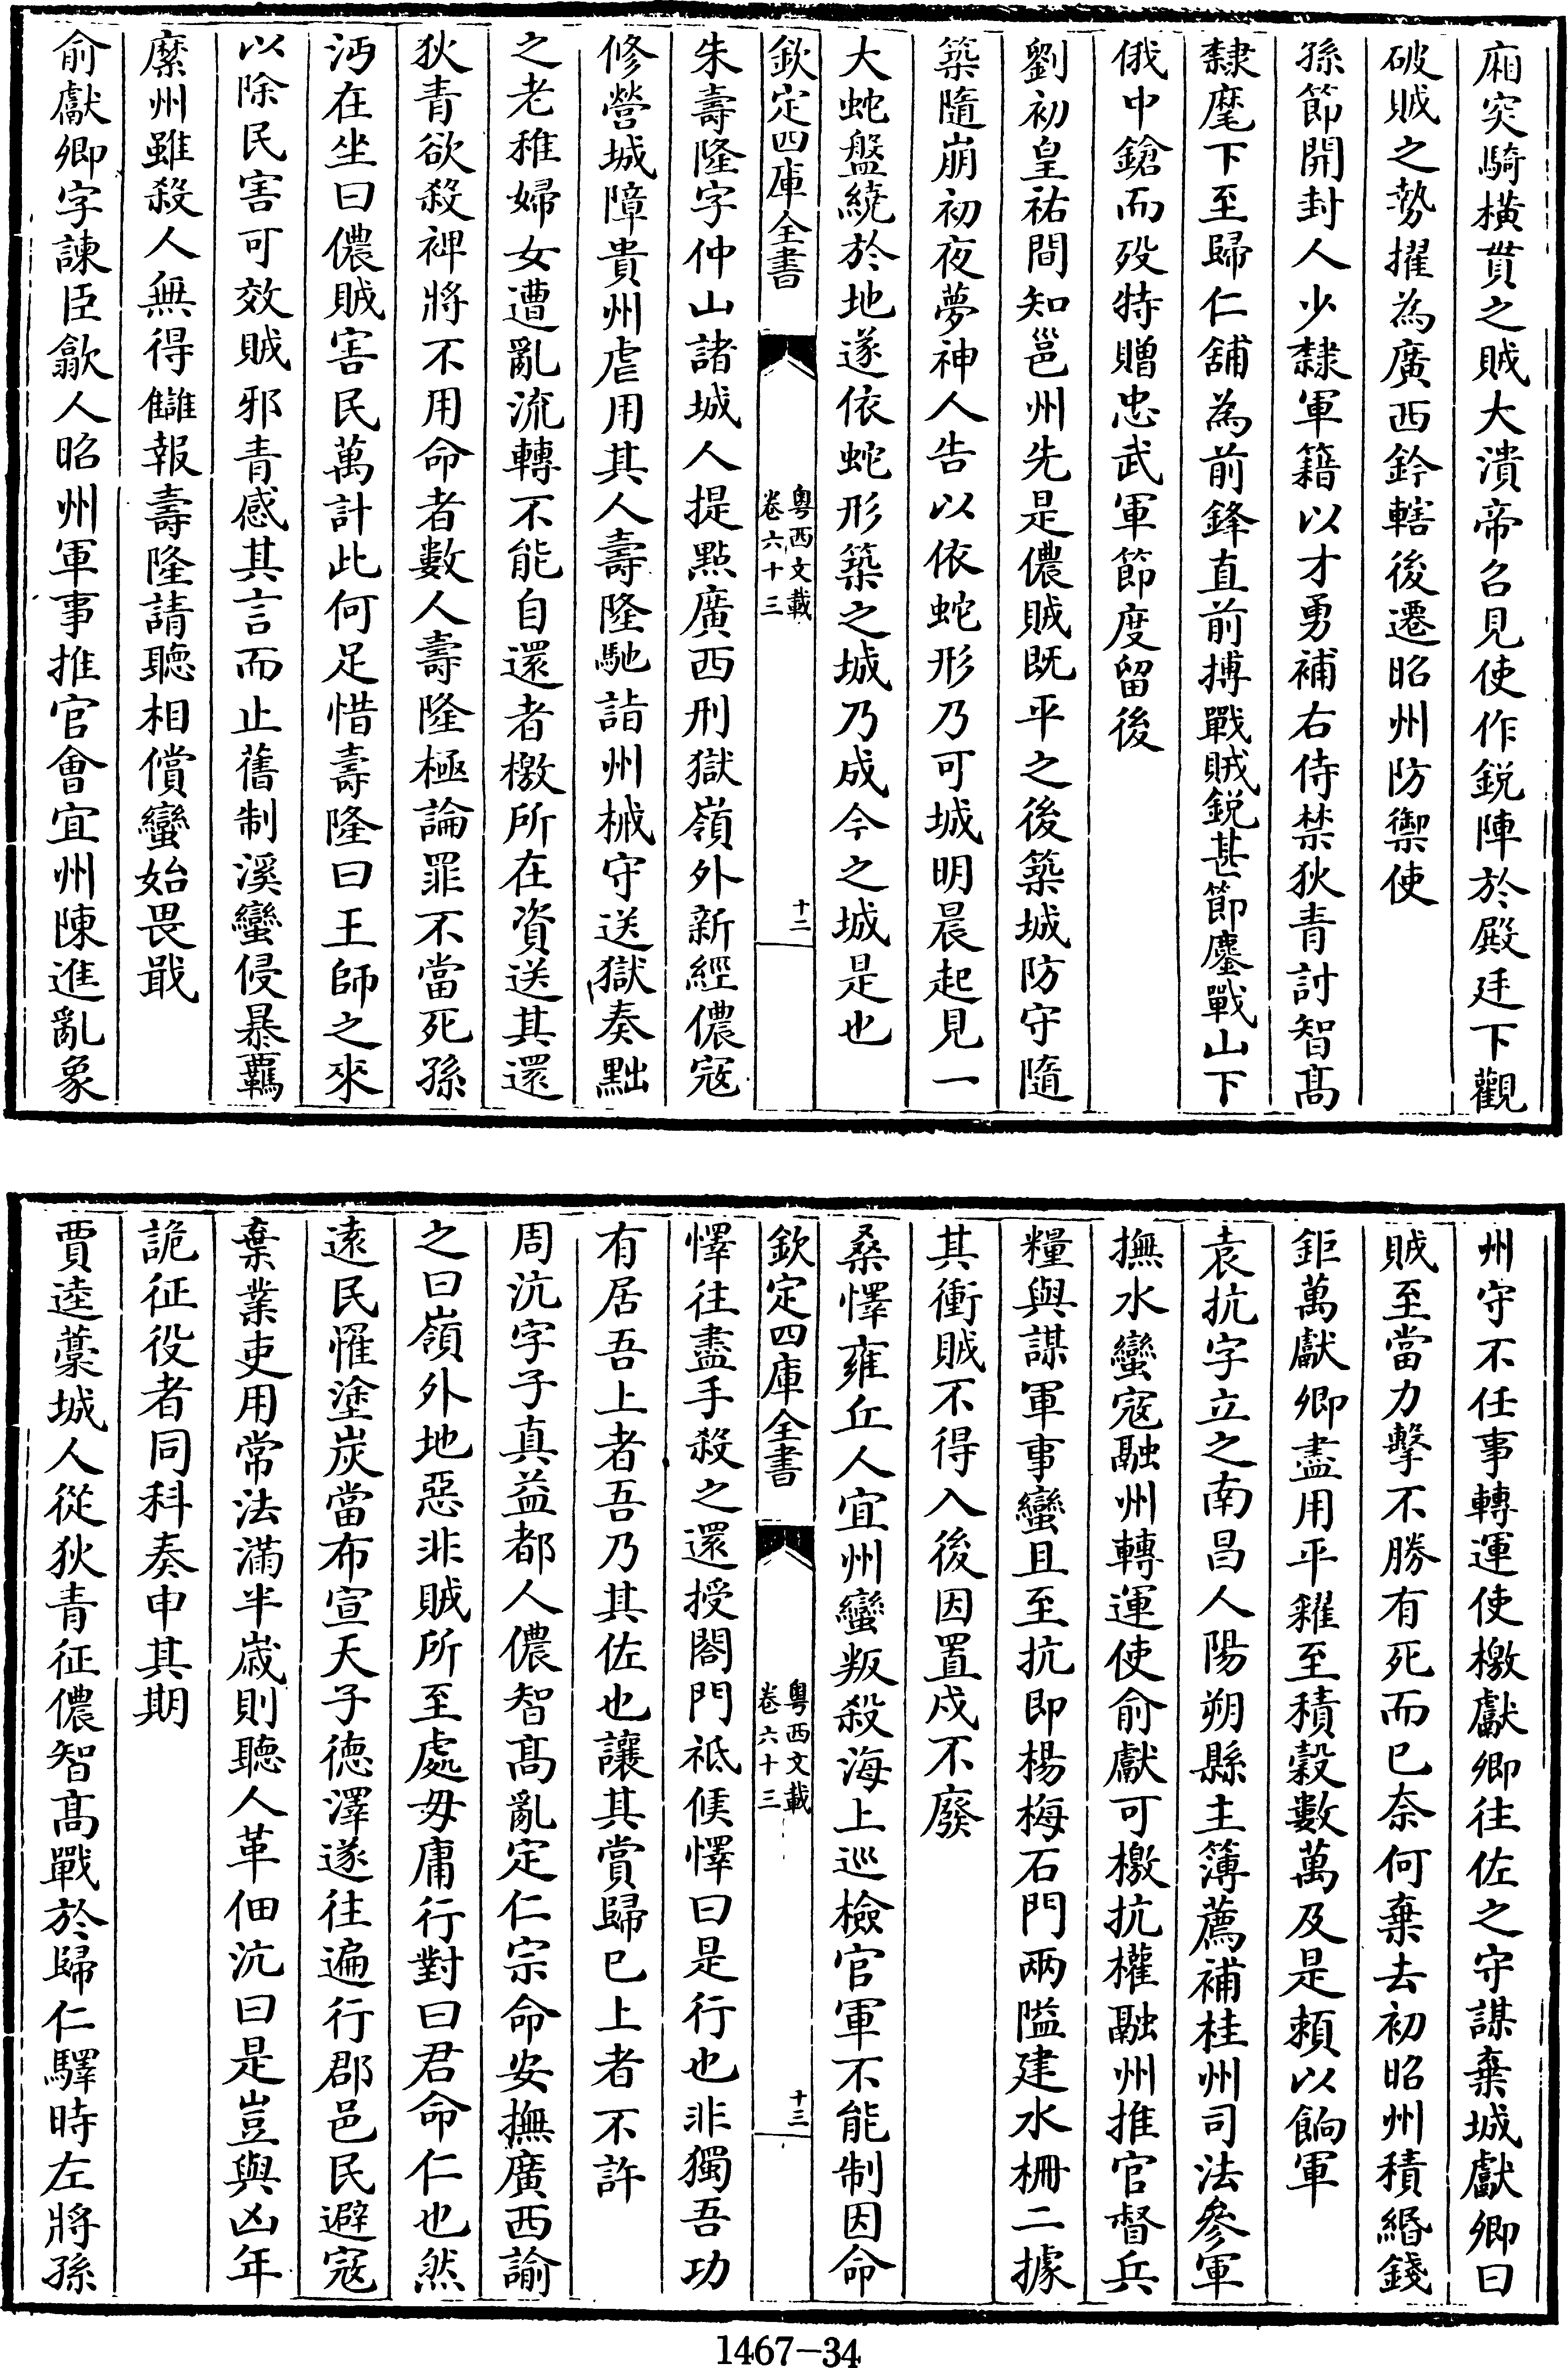 廂突騎橫貫之賊大潰帝召見使作銳陣於殿廷下觀
破賊之勢擢為廣西鈐轄後遷昭州防禦使
孫節開封人少隸軍籍以才勇補右侍禁狄青討智髙
隸麾下至歸仁舖為前鋒直前搏戰賊銳甚節鏖戰山下
俄中鎗而殁特贈忠武軍節度留後
劉初皇祐間知邕州先是儂賊既平之後築城防守隨
築隨崩初夜夢神人告以依蛇形乃可城明晨起見一
大蛇盤繞於地遂依蛇形築之城乃成今之城是也
欽定四庫全書
粵西文載
卷六十三
十二
朱壽隆字仲山諸城人提點廣西刑獄嶺外新經儂寇
修營城障貴州虐用其人壽隆馳詣州械守送獄奏黜
之老稚婦女遭亂流轉不能自還者檄所在資送其還
狄青欲殺裨將不用命者數人壽隆極論罪不當死孫
沔在坐曰儂賊害民萬計此何足惜壽隆曰王師之來
以除民害可效賊邪青感其言而止舊制溪蠻侵暴羈
縻州雖殺人無得讎報壽隆請聽相償蠻始畏戢
俞獻卿字諫臣歙人昭州軍事推官會宜州陳進亂象
州守不任事轉運使檄獻卿往佐之守謀棄城獻卿曰
賊至當力擊不勝有死而已奈何棄去初昭州積緡錢
鉅萬獻卿盡用平糴至積穀數萬及是頼以餉軍
袁抗字立之南昌人陽朔縣主簿薦補桂州司法參軍
撫水蠻寇融州轉運使俞獻可檄抗權融州推官督兵
糧與謀軍事蠻且至抗即楊梅石門兩隘建水柵二據
其衝賊不得入後因置戍不廢
桑懌雍丘人宜州蠻叛殺海上巡檢官軍不能制因命
欽定四庫全書
粵西文載
卷六十三
十三
懌往盡手殺之還授閤門祗候懌曰是行也非獨吾功
有居吾上者吾乃其佐也讓其賞歸已上者不許
周沆字子真益都人儂智髙亂定仁宗命安撫廣西諭
之曰嶺外地惡非賊所至處毋庸行對曰君命仁也然
逺民罹塗炭當布宣天子徳澤遂往遍行郡邑民避寇
棄業吏用常法滿半歲則聽人革佃沆曰是豈與凶年
詭征役者同科奏申其期
賈逵藁城人從狄青征儂智髙戰於歸仁驛時左將孫
1467-34